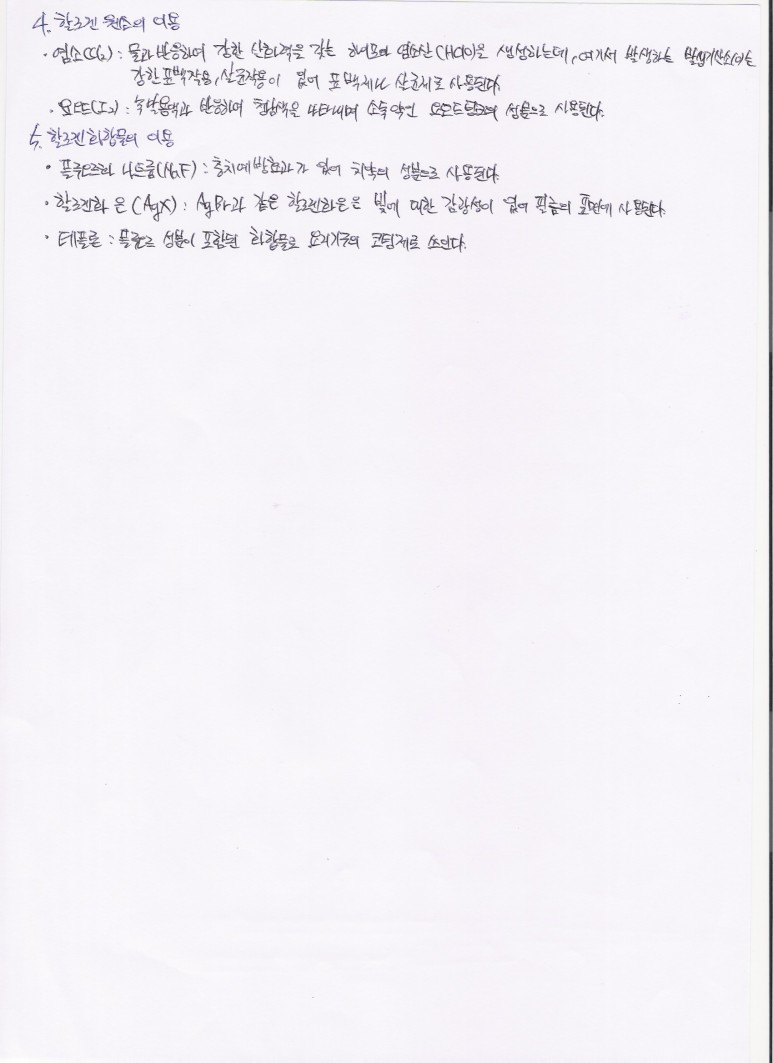 4. 할로겐 원소의 이용
· 염소(Cl₂) : 물과 반응하여 강한 산화력을 갖는 하이포아 염소산(HClO)을 생성하는데, 여기서 발생하는 발생기산소(O)는
강한 표백작용, 살균작용이 있어 표백제나 살균제로 사용된다.
· 요오드(I₂) : 녹말용액과 반응하여 청남색을 나타내며 소독약인 요오드팅크의 성분으로 사용된다.
5. 할로겐화합물의 이용
· 플루오르화 나트륨(NaF) : 충치예방효과가 있어 치약의 성분으로 사용된다.
· 할로겐화 은 (AgX) : AgBr과 같은 할로겐화은은 빛에 대한 감광성이 있어 필름의 표면에 사용된다.
· 테플론 : 플루오르 성분이 포함된 화합물로 요리기구의 코팅제로 쓰인다.